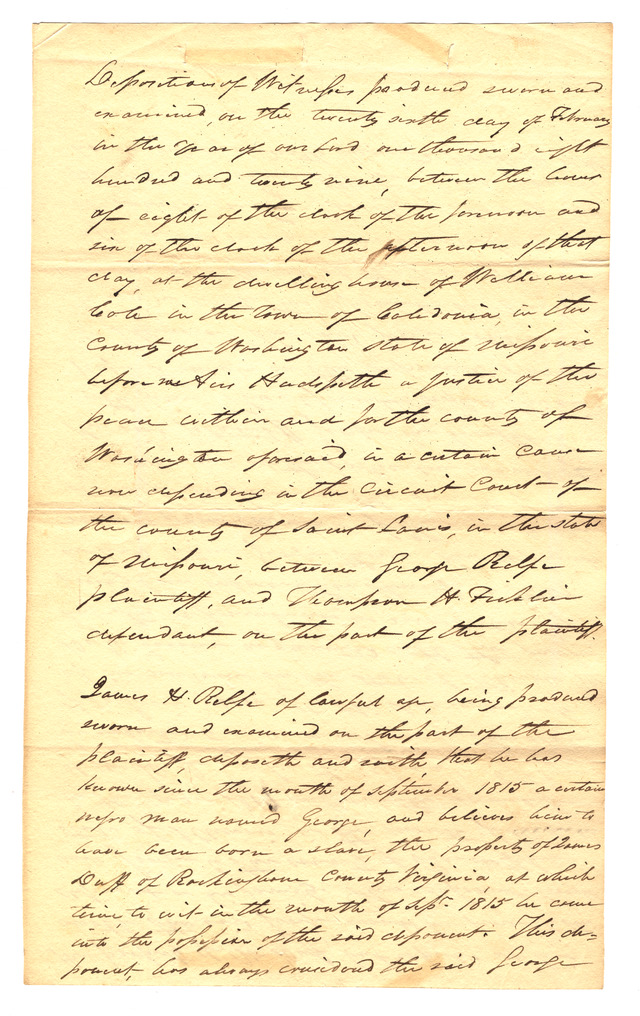 Depositions of Witnesses produced sworn and
examined, on the twenty sixth day of February
in the year of our Lord one thousand eight
hundred and twenty nine, between the hours
of eight of the clock of the forenoon and
six of the clock of the afternoon of that
day, at the dwelling house of William
Cole in the Town of Caledonia, in the
County of Washington state of Missouri
before me Airs Hudspeth a justice of the
peace within and for the county of
Washington aforesaid, in a certain cause
now depending in the Circuit Court of
the county of Saint Louis, in the state
of Missouri, between George Relfe
plaintiff, and Thompson H. Ficklin
defendant, on the part of the plaintiff.
James H. Relfe of lawful age, being produced
sworn and examined on the part of the
plaintiff, deposeth and saith that he has
known since the month of september 1815 a certain
negro man named George, and believes him to
have been born a slave, the property of James
Duff of Rockingham County Virginia, at which
time, to wit in the month of Sept. 1815 he came
into the possession of the said deponent. This de=
ponent, has always considered the said George